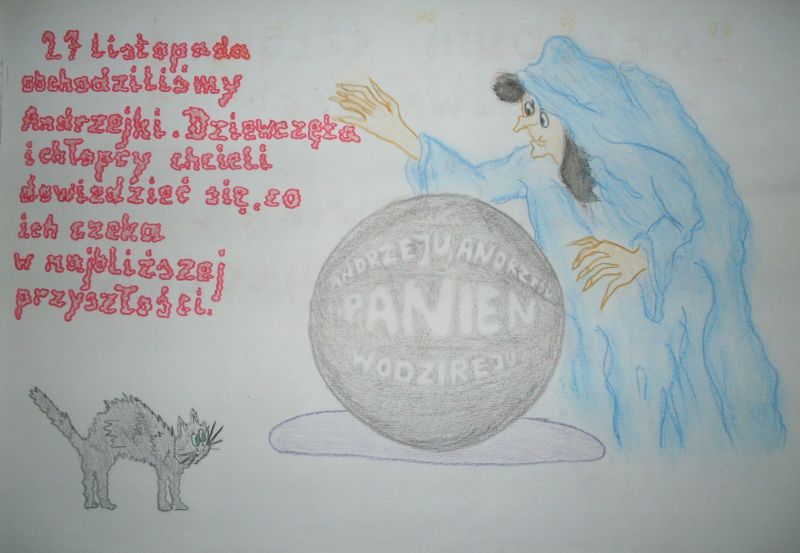 27 listopada
obchodziliśmy
Andrzejki. Dziewczęta
i chłopcy chcieli
dowiedzieć się, co
ich czeka
w najbliższej
przyszłości.
ANDRZEJU, ANDRZEJU
PANIEN
WODZIREJU